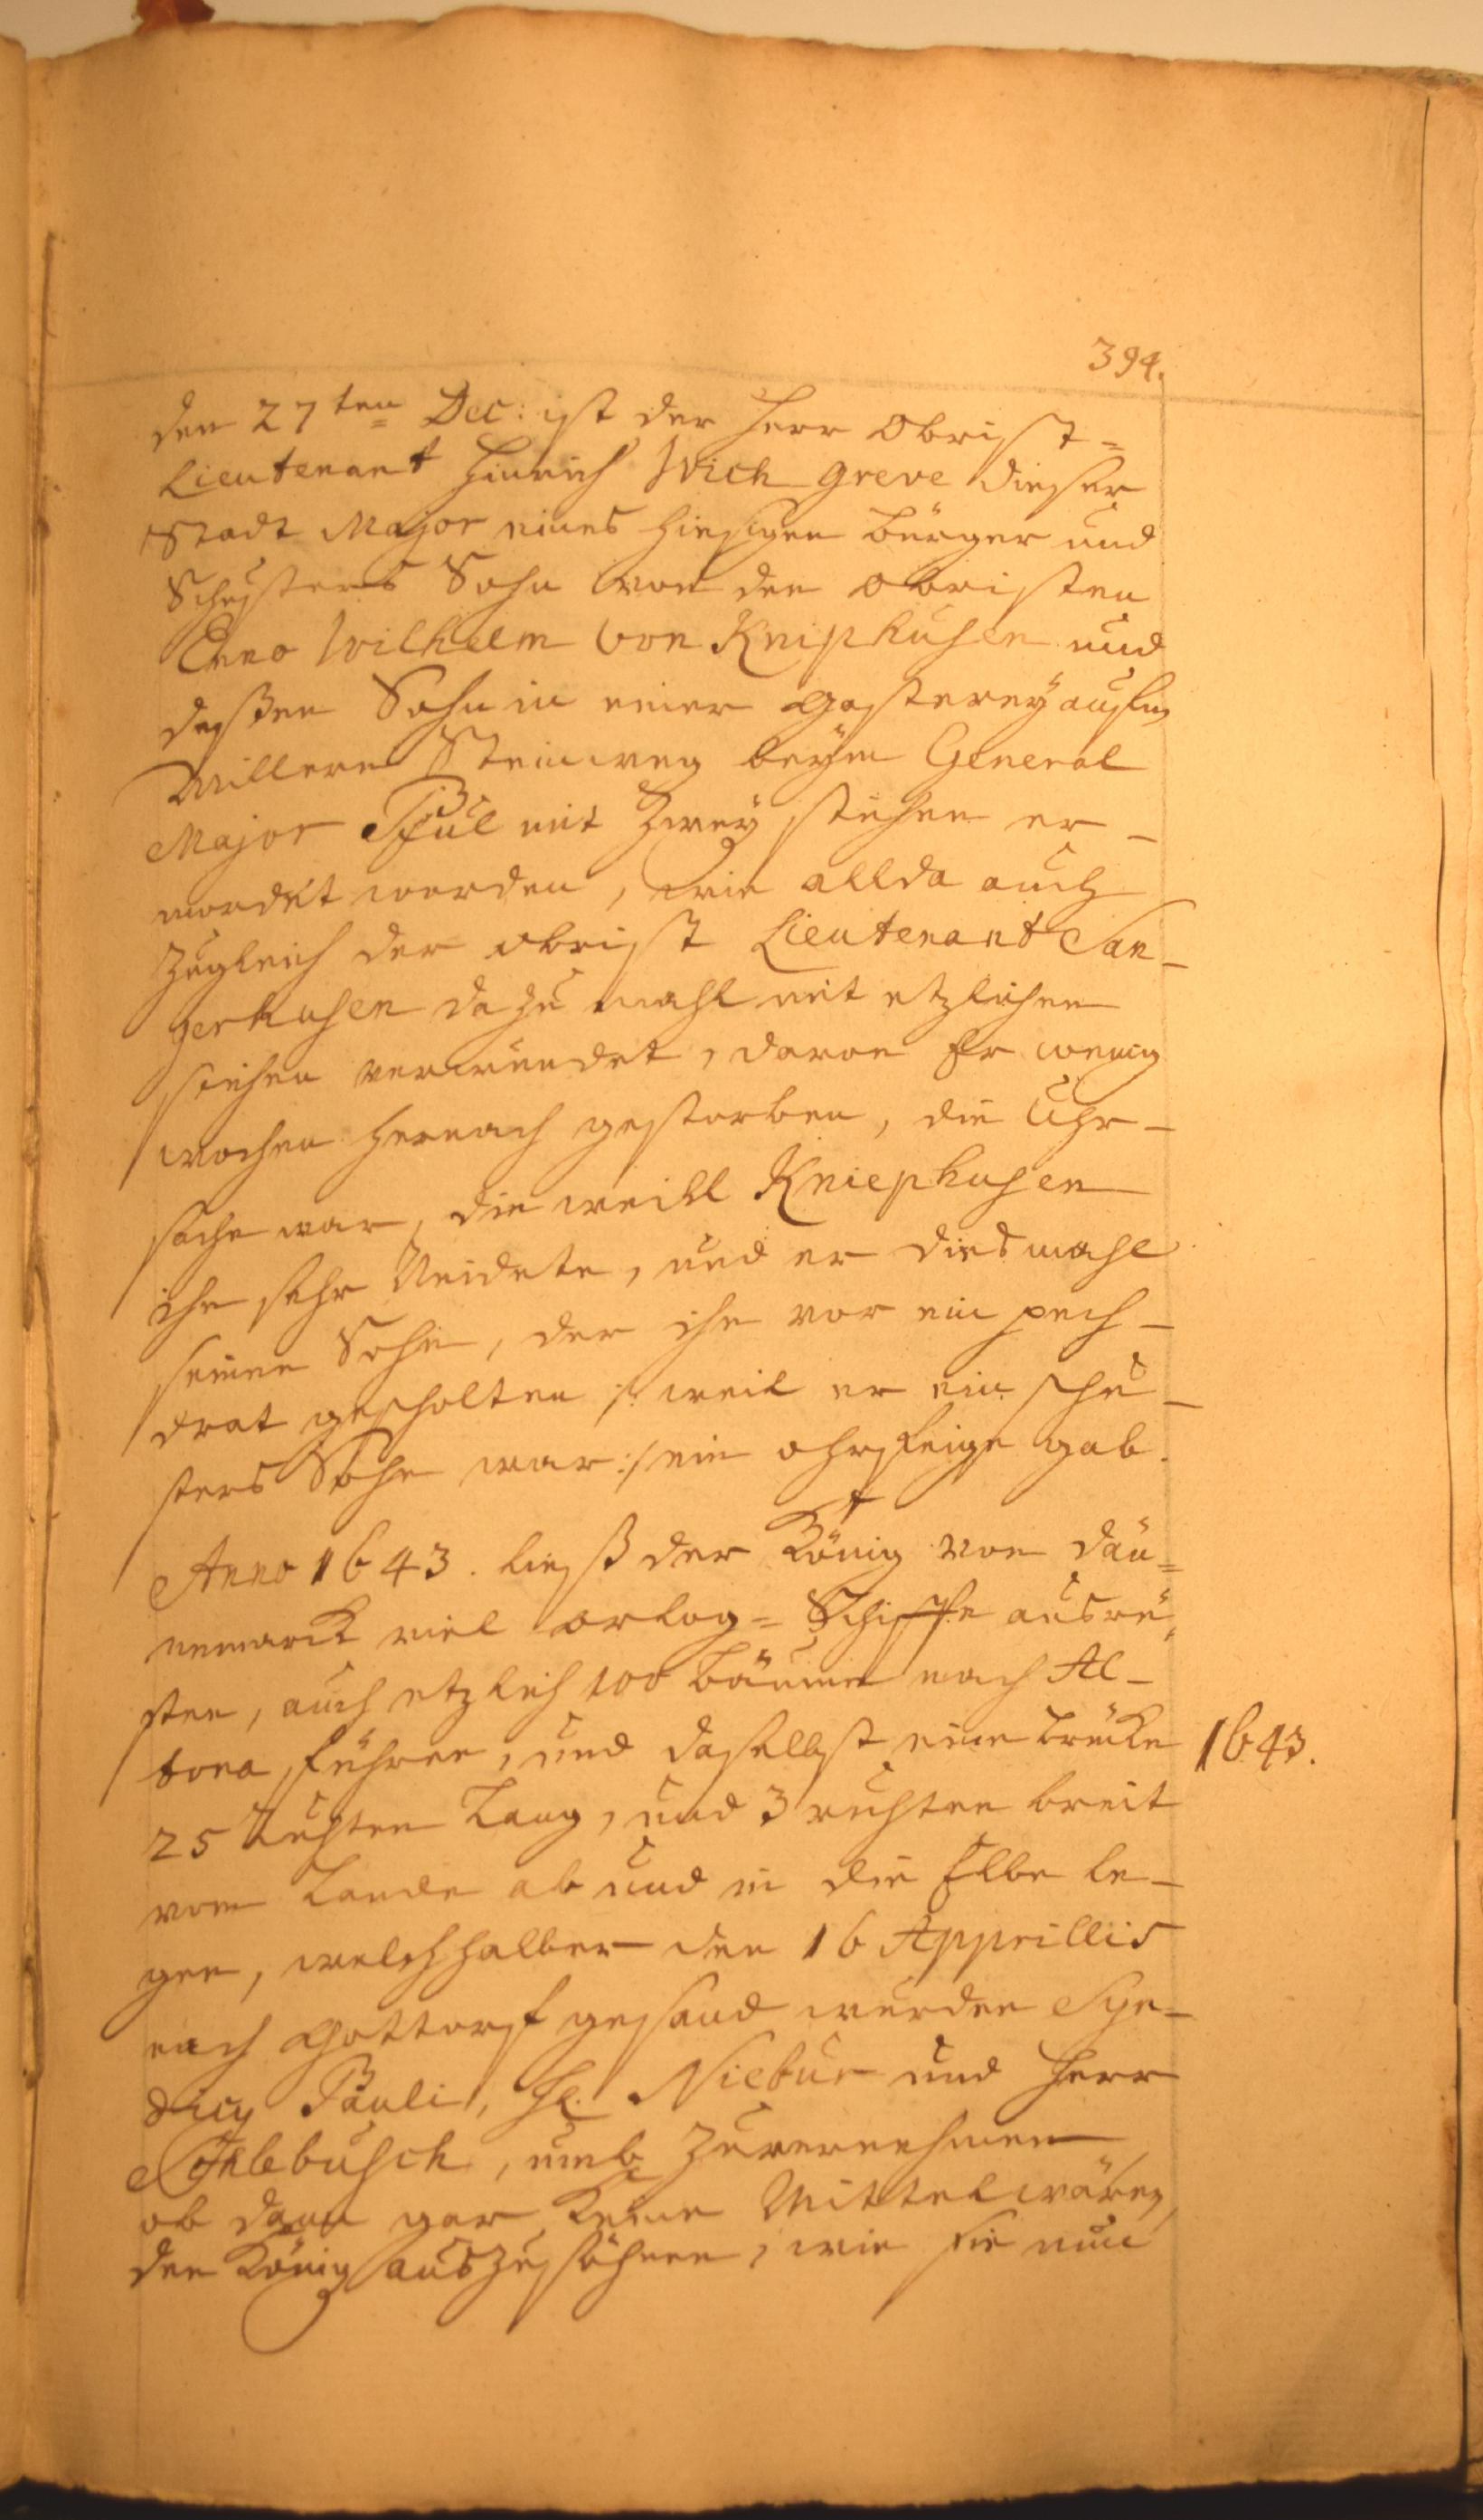 394.
den 27ten Dec: ist der Herr Obrist=
Lieutenant Hinrich Wich greve dieser
Stadt Major eines hiesigen bürger und
Schusters Sohn von den obristen
Enno Wilhelm von Kniphusen und
deßen Sohn in einer gasterey aufm
Millern Steinweg beym General
Major Pful mit Zwey stichen er-
mordet worden, wie allda auch
zugleich der obrist Lieutenant San-
gerhusen dazu mahl mit etzlichen
stichen verwundet, davon Er wenig
wochen hernach gestorben, die Uhr-
sache war, die weill Kniephusen
ihn sehr Neidete, und er diesmahl
seinen Sohn, der ihn vor ein pech-
drat gescholten /: weil er ein schu-
sters Sohn war :/ ein ohrfeige gab.
Anno 1643. ließ der König von Dän=
nemarck viel orlog=Schiffe ausrü,
sten, auch etzlich 100 bäume nach Al-
tona führen, und daselbst eine brücke
1643.
25 Ruhten Lang, und 3 ruhten breit
vom Lande ab und in die Elbe le-
gen, welchhalber den 16 Apprillis
nach Gottorf gesand wurden Syn-
dicy Pauli, H. Niebur und Herr
Schlebusch, umb zuvernehmen
ob dann gar keine Mittel wären,
den König auszusöhnen, wie sie nun